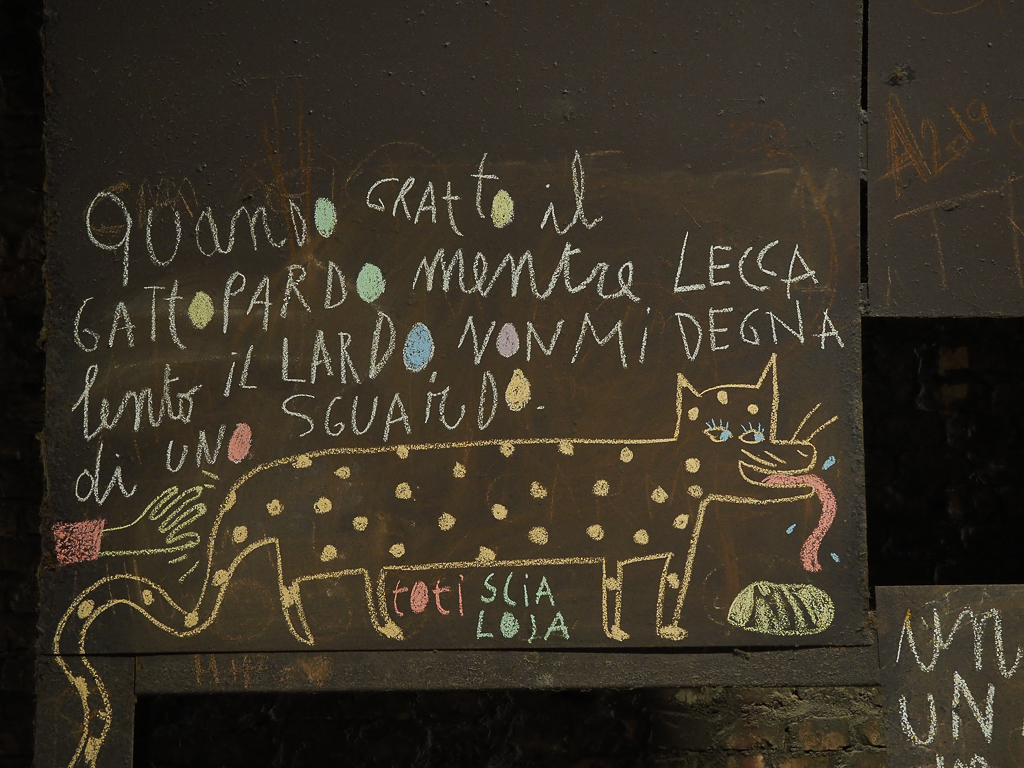 Quando GRAtto il
GAttoPARDO mentre LECCA
lento iL LARDO NON Mi DEGNA
di UNO SGUARDO.
toti SCIA
LOJA
A2019
un
UN